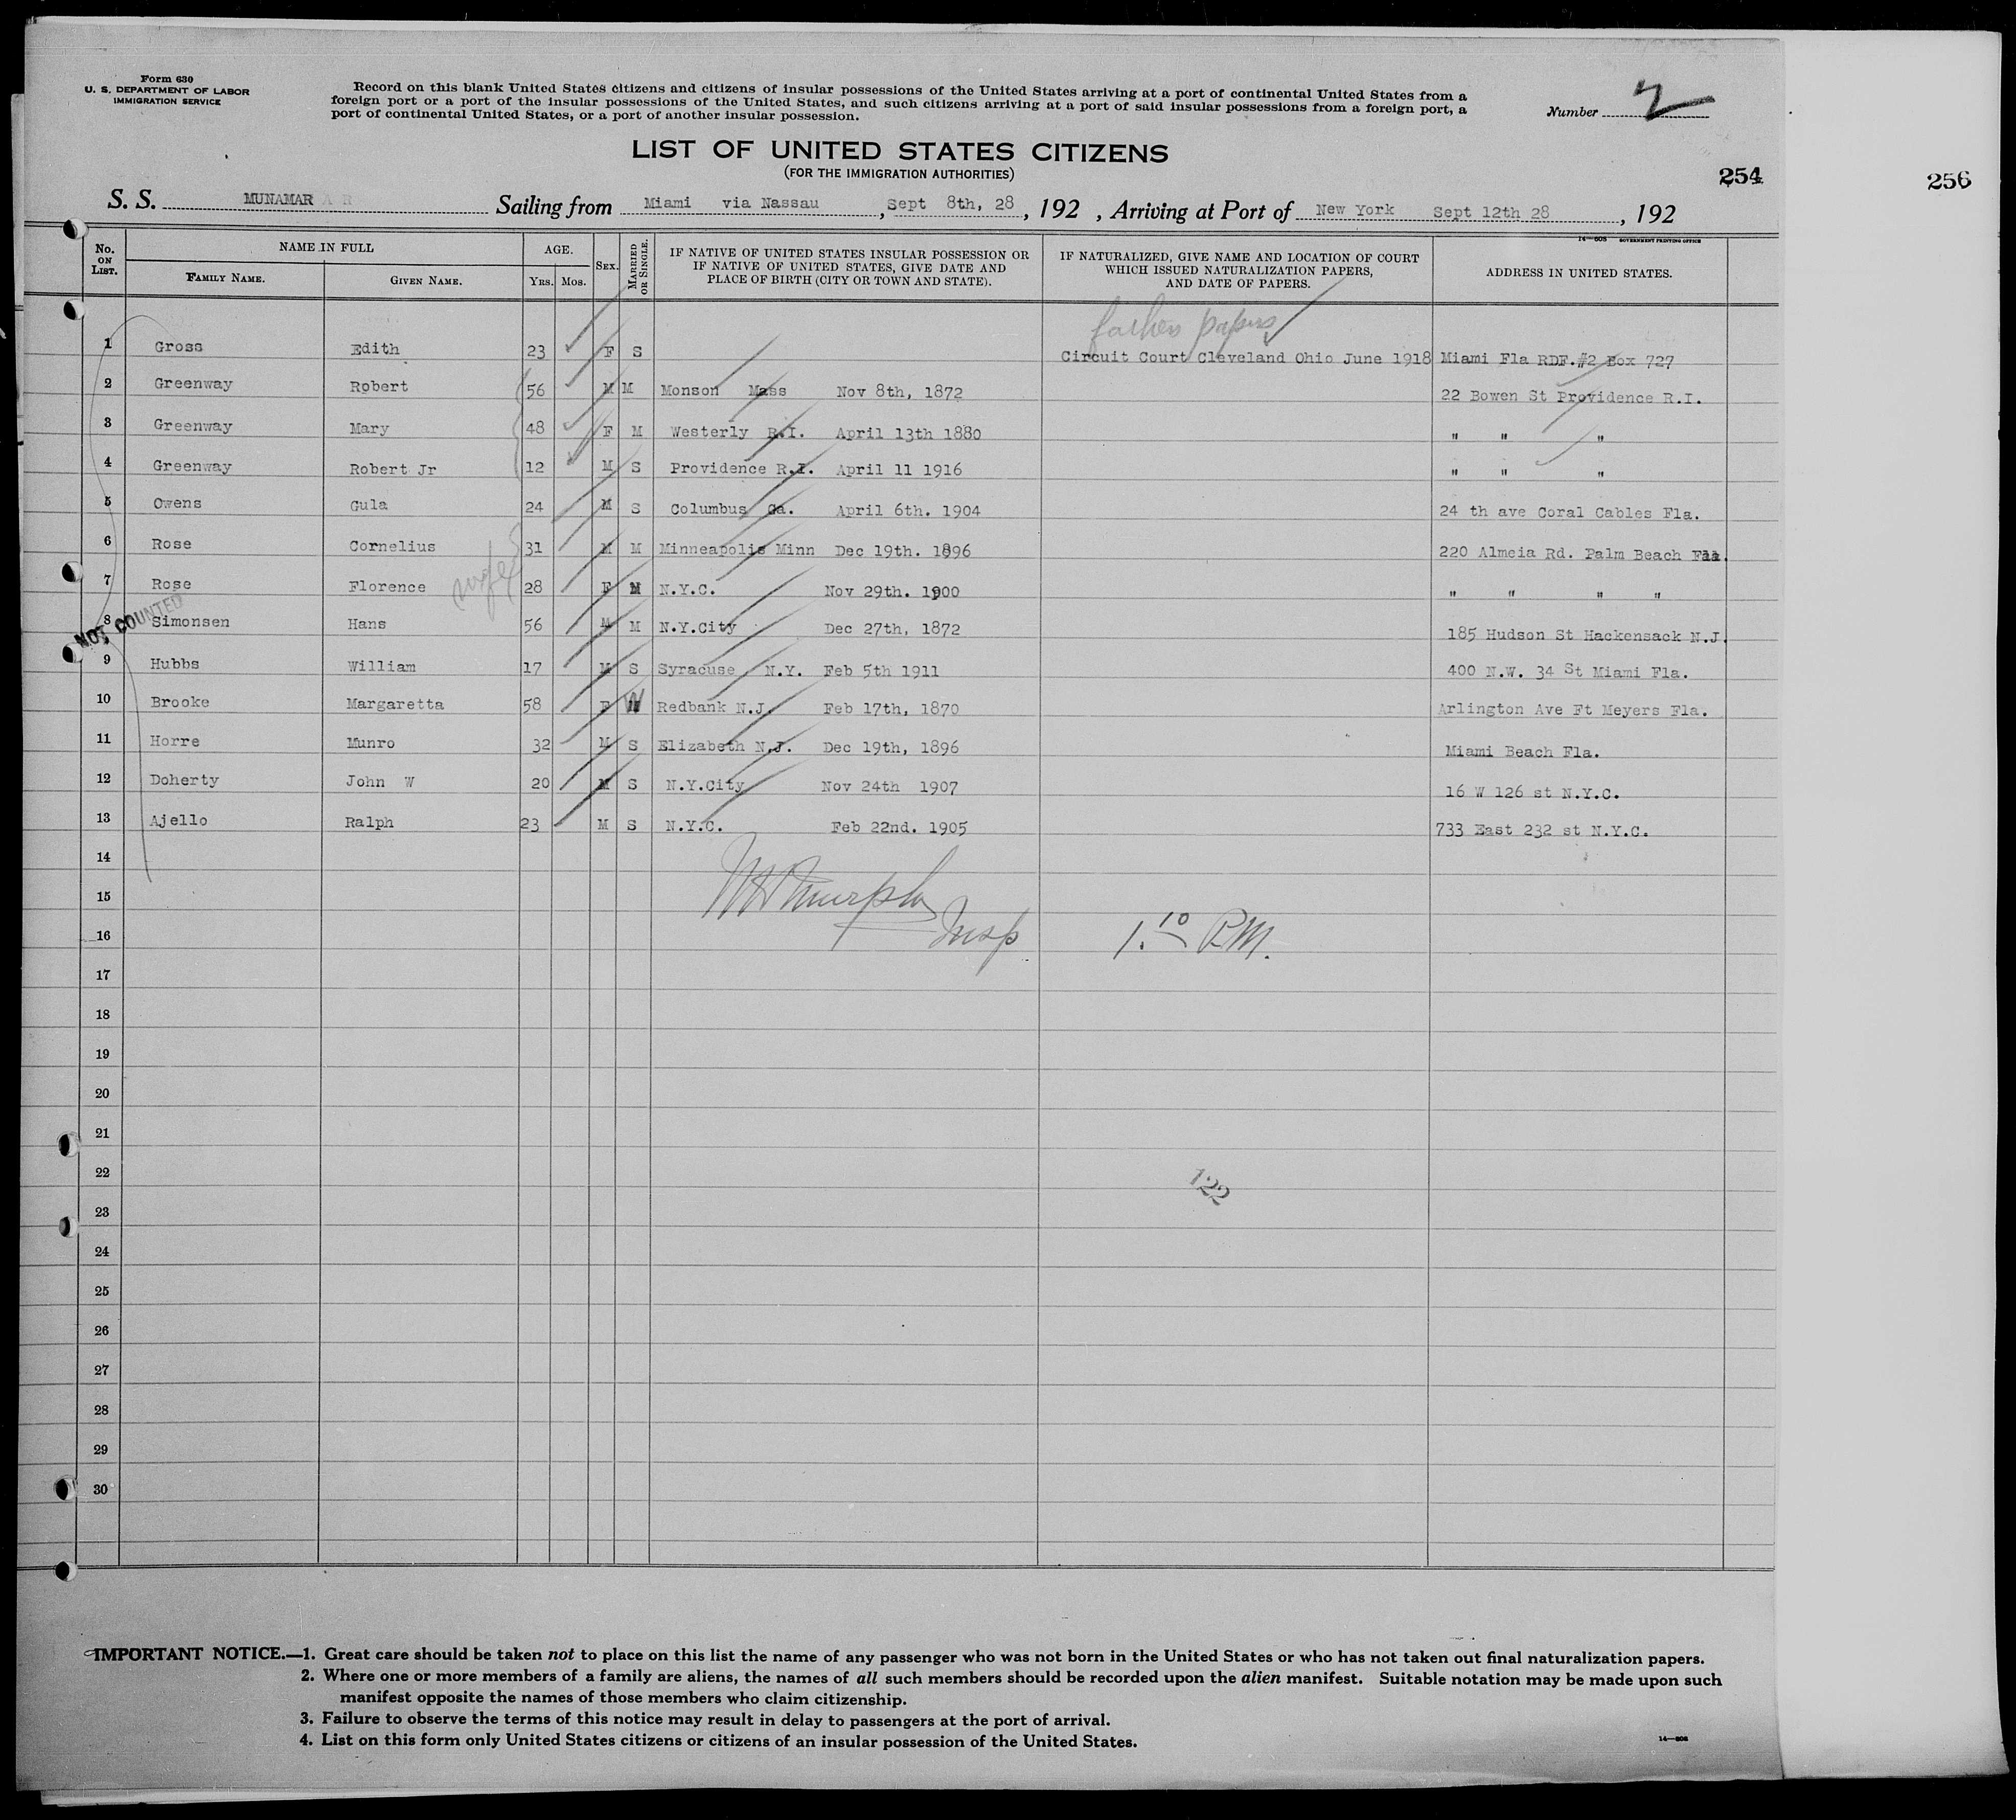 Form 630
U. S. DEPARTMENT OF LABOR
IMMIGRATION SERVICE
Record on this blank United States citizens and citizens of insular possessions of the United States arriving at a port of continental United States from a
foreign port or a port of the insular possessions of the United States, and such citizens arriving at a port of said insular possessions from a foreign port, a
port of continental United States, or a port of another insular possession.
Number 2
LIST OF UNITED STATES CITIZENS
(FOR THE IMMIGRATION AUTHORITIES)
254
256
S. S. MUNAMAR A R Sailing from Miami via Nassau , Sept 8th, 28 , 192 , Arriving at Port of New York Sept 12th 28 , 192
14—608 GOVERNMENT PRINTING OFFICE
No. ON LIST. NAME IN FULL FAMILY NAME. GIVEN NAME. AGE. YRS. MOS. SEX. MARRIED OR SINGLE. IF NATIVE OF UNITED STATES INSULAR POSSESSION OR IF NATIVE OF UNITED STATES, GIVE DATE AND PLACE OF BIRTH (CITY OR TOWN AND STATE). IF NATURALIZED, GIVE NAME AND LOCATION OF COURT WHICH ISSUED NATURALIZATION PAPERS, AND DATE OF PAPERS. ADDRESS IN UNITED STATES.
fathers papers
1 Gross Edith 23 F S Circuit Court Cleveland Ohio June 1918 Miami Fla RDF.#2 Box 727
2 Greenway Robert 56 M M Monson Mass Nov 8th, 1872 22 Bowen St Providence R.I.
3 Greenway Mary 48 F M Westerly R.I. April 13th 1880 " " "
4 Greenway Robert Jr 12 M S Providence R.I. April 11 1916 " " "
5 Owens Gula 24 M S Columbus Ga. April 6th. 1904 24 th ave Coral Cables Fla.
6 Rose Cornelius 31 M M Minneapolis Minn Dec 19th. 1896 220 Almeia Rd. Palm Beach Fla.
wife
7 Rose Florence 28 F M N.Y.C. Nov 29th. 1900 " " " "
NOT COUNTED
8 Simonsen Hans 56 M M N.Y.City Dec 27th, 1872 185 Hudson St Hackensack N.J.
9 Hubbs William 17 M S Syracuse N.Y. Feb 5th 1911 400 N.W. 34 St Miami Fla.
10 Brooke Margaretta 58 F W Redbank N.J. Feb 17th, 1870 Arlington Ave Ft Meyers Fla.
11 Horre Munro 32 M S Elizabeth N.J. Dec 19th, 1896 Miami Beach Fla.
12 Doherty John W 20 M S N.Y.City Nov 24th 1907 16 W 126 st N.Y.C.
13 Ajello Ralph 23 M S N.Y.C. Feb 22nd. 1905 733 East 232 st N.Y.C.
14
15 Murphy
16 Insp 1.10 P.M.
17
18
19
20
21
22 122
23
24
25
26
27
28
29
30
IMPORTANT NOTICE.—1. Great care should be taken not to place on this list the name of any passenger who was not born in the United States or who has not taken out final naturalization papers.
2. Where one or more members of a family are aliens, the names of all such members should be recorded upon the alien manifest. Suitable notation may be made upon such
manifest opposite the names of those members who claim citizenship.
3. Failure to observe the terms of this notice may result in delay to passengers at the port of arrival.
4. List on this form only United States citizens or citizens of an insular possession of the United States.
14—608